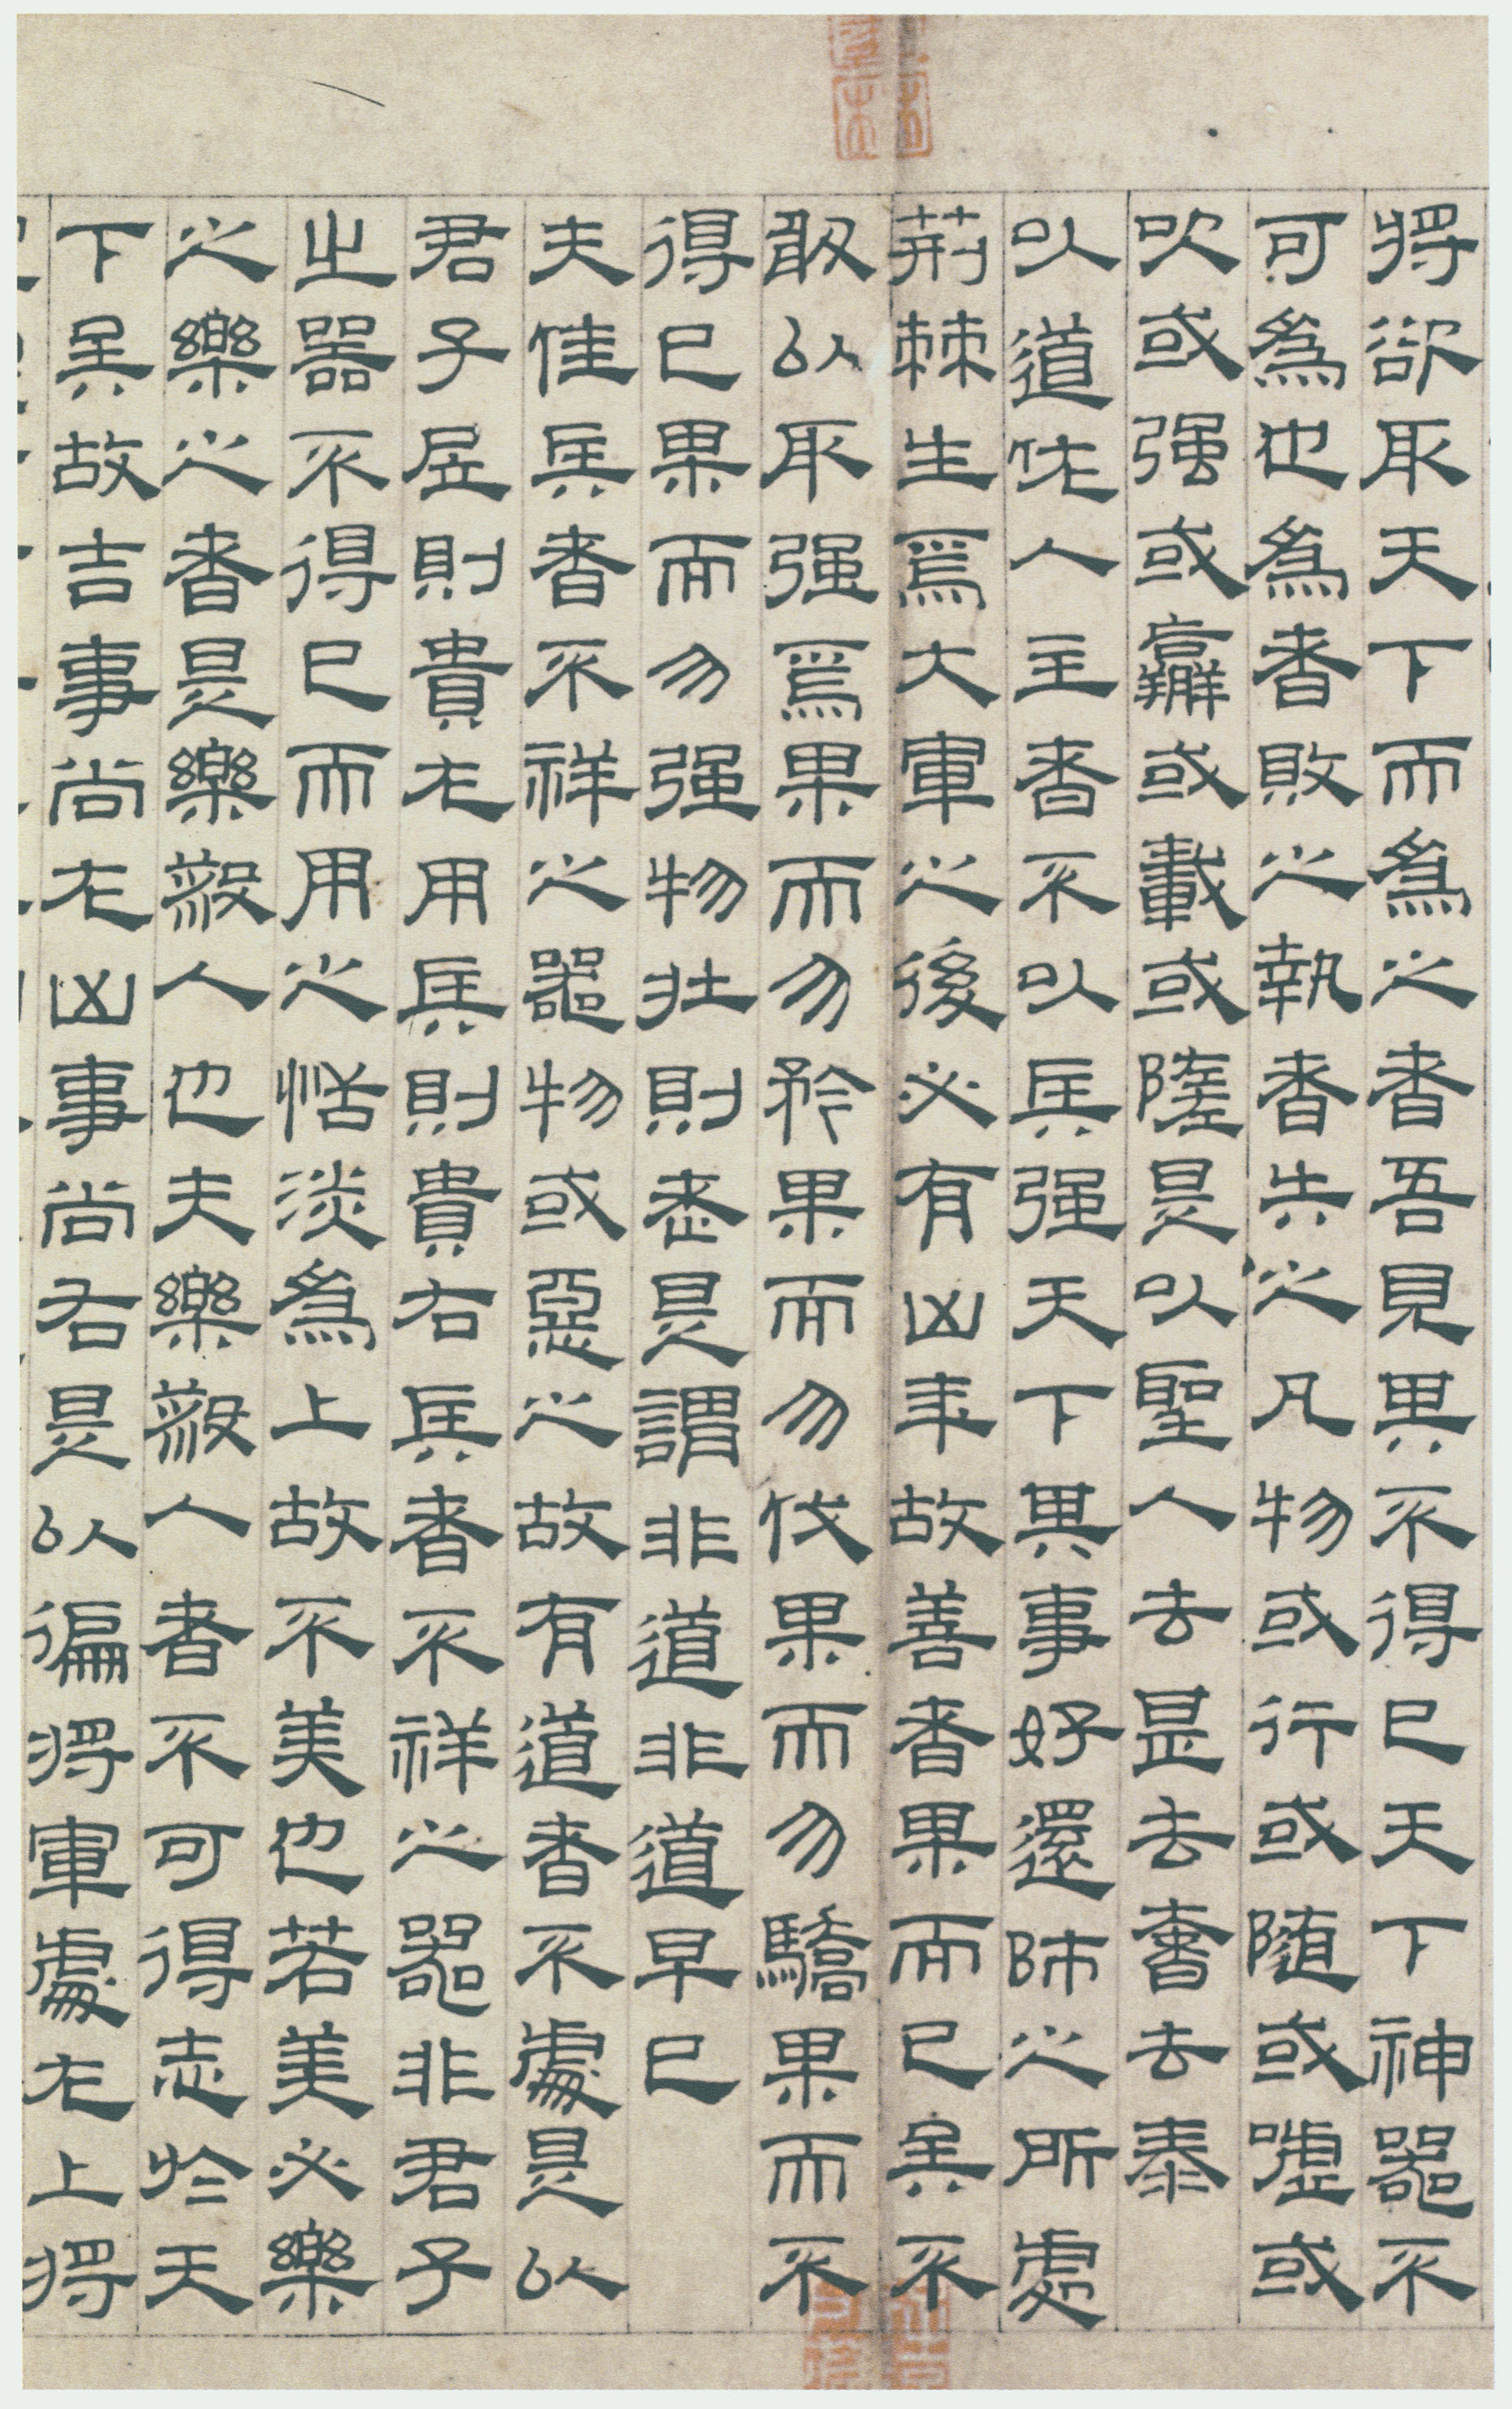 將欲取天下而為之者吾見其不得已天下神器不
可為也為者敗之執者失之凡物或行或随或噓或
吹或强或羸或載或隳是以聖人去甚去奢去泰
以道佐人主者不以兵强天下其事好還師之所處
荊棘生焉大軍之後必有凶年故善者果而已矣不
敢以取强焉果而勿矜果而勿伐果而勿驕果而不
得已果而勿强物壯則老是謂非道非道早已
夫佳兵者不祥之器物或惡之故有道者不處是以
君子居則貴左用兵則貴右兵者不祥之器非君子
之器不得已而用之恬淡為上故不美也若美必樂
之樂之者是樂殺人也夫樂殺人者不可得志於天
下矣故吉事尚左凶事尚右是以偏將軍處左上將